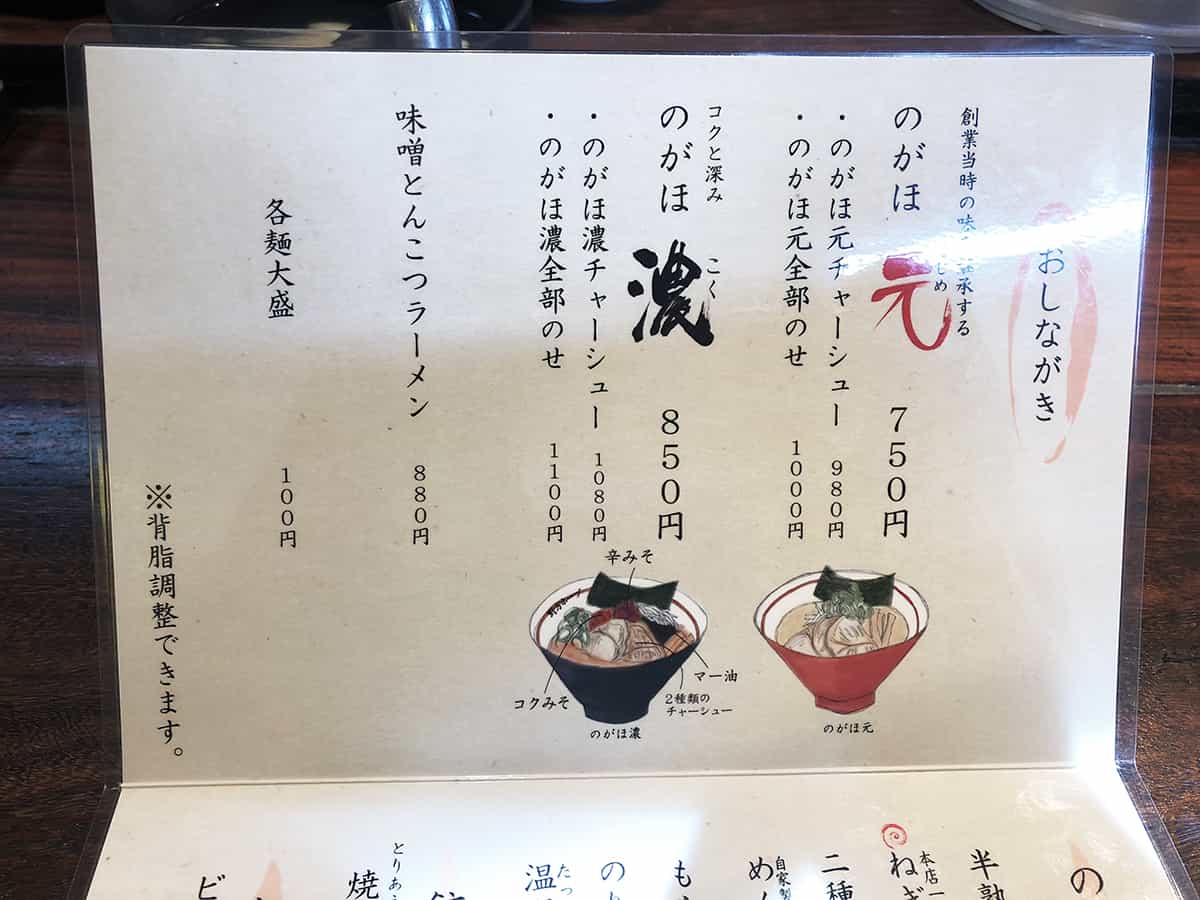 おしながき
創業当時の味を継承する
のがほ 元 750円
・のがほ元チャーシュー 980円
・のがほ元全部のせ 1000円
コクと深み
こく
のがほ 濃 850円
・のがほ濃チャーシュー 1080円
・のがほ濃全部のせ 1100円
味噌とんこつラーメン 880円
各麺大盛 100円
※背脂調整できます。
のがほ元
辛みそ
マー油
2種類の
チャーシュー
コクみそ
のがほ濃
の
半熟
本店一
ねぎ
二種
自家製
めん
も
のり
たっ
温
とりあえ
焼
ビ